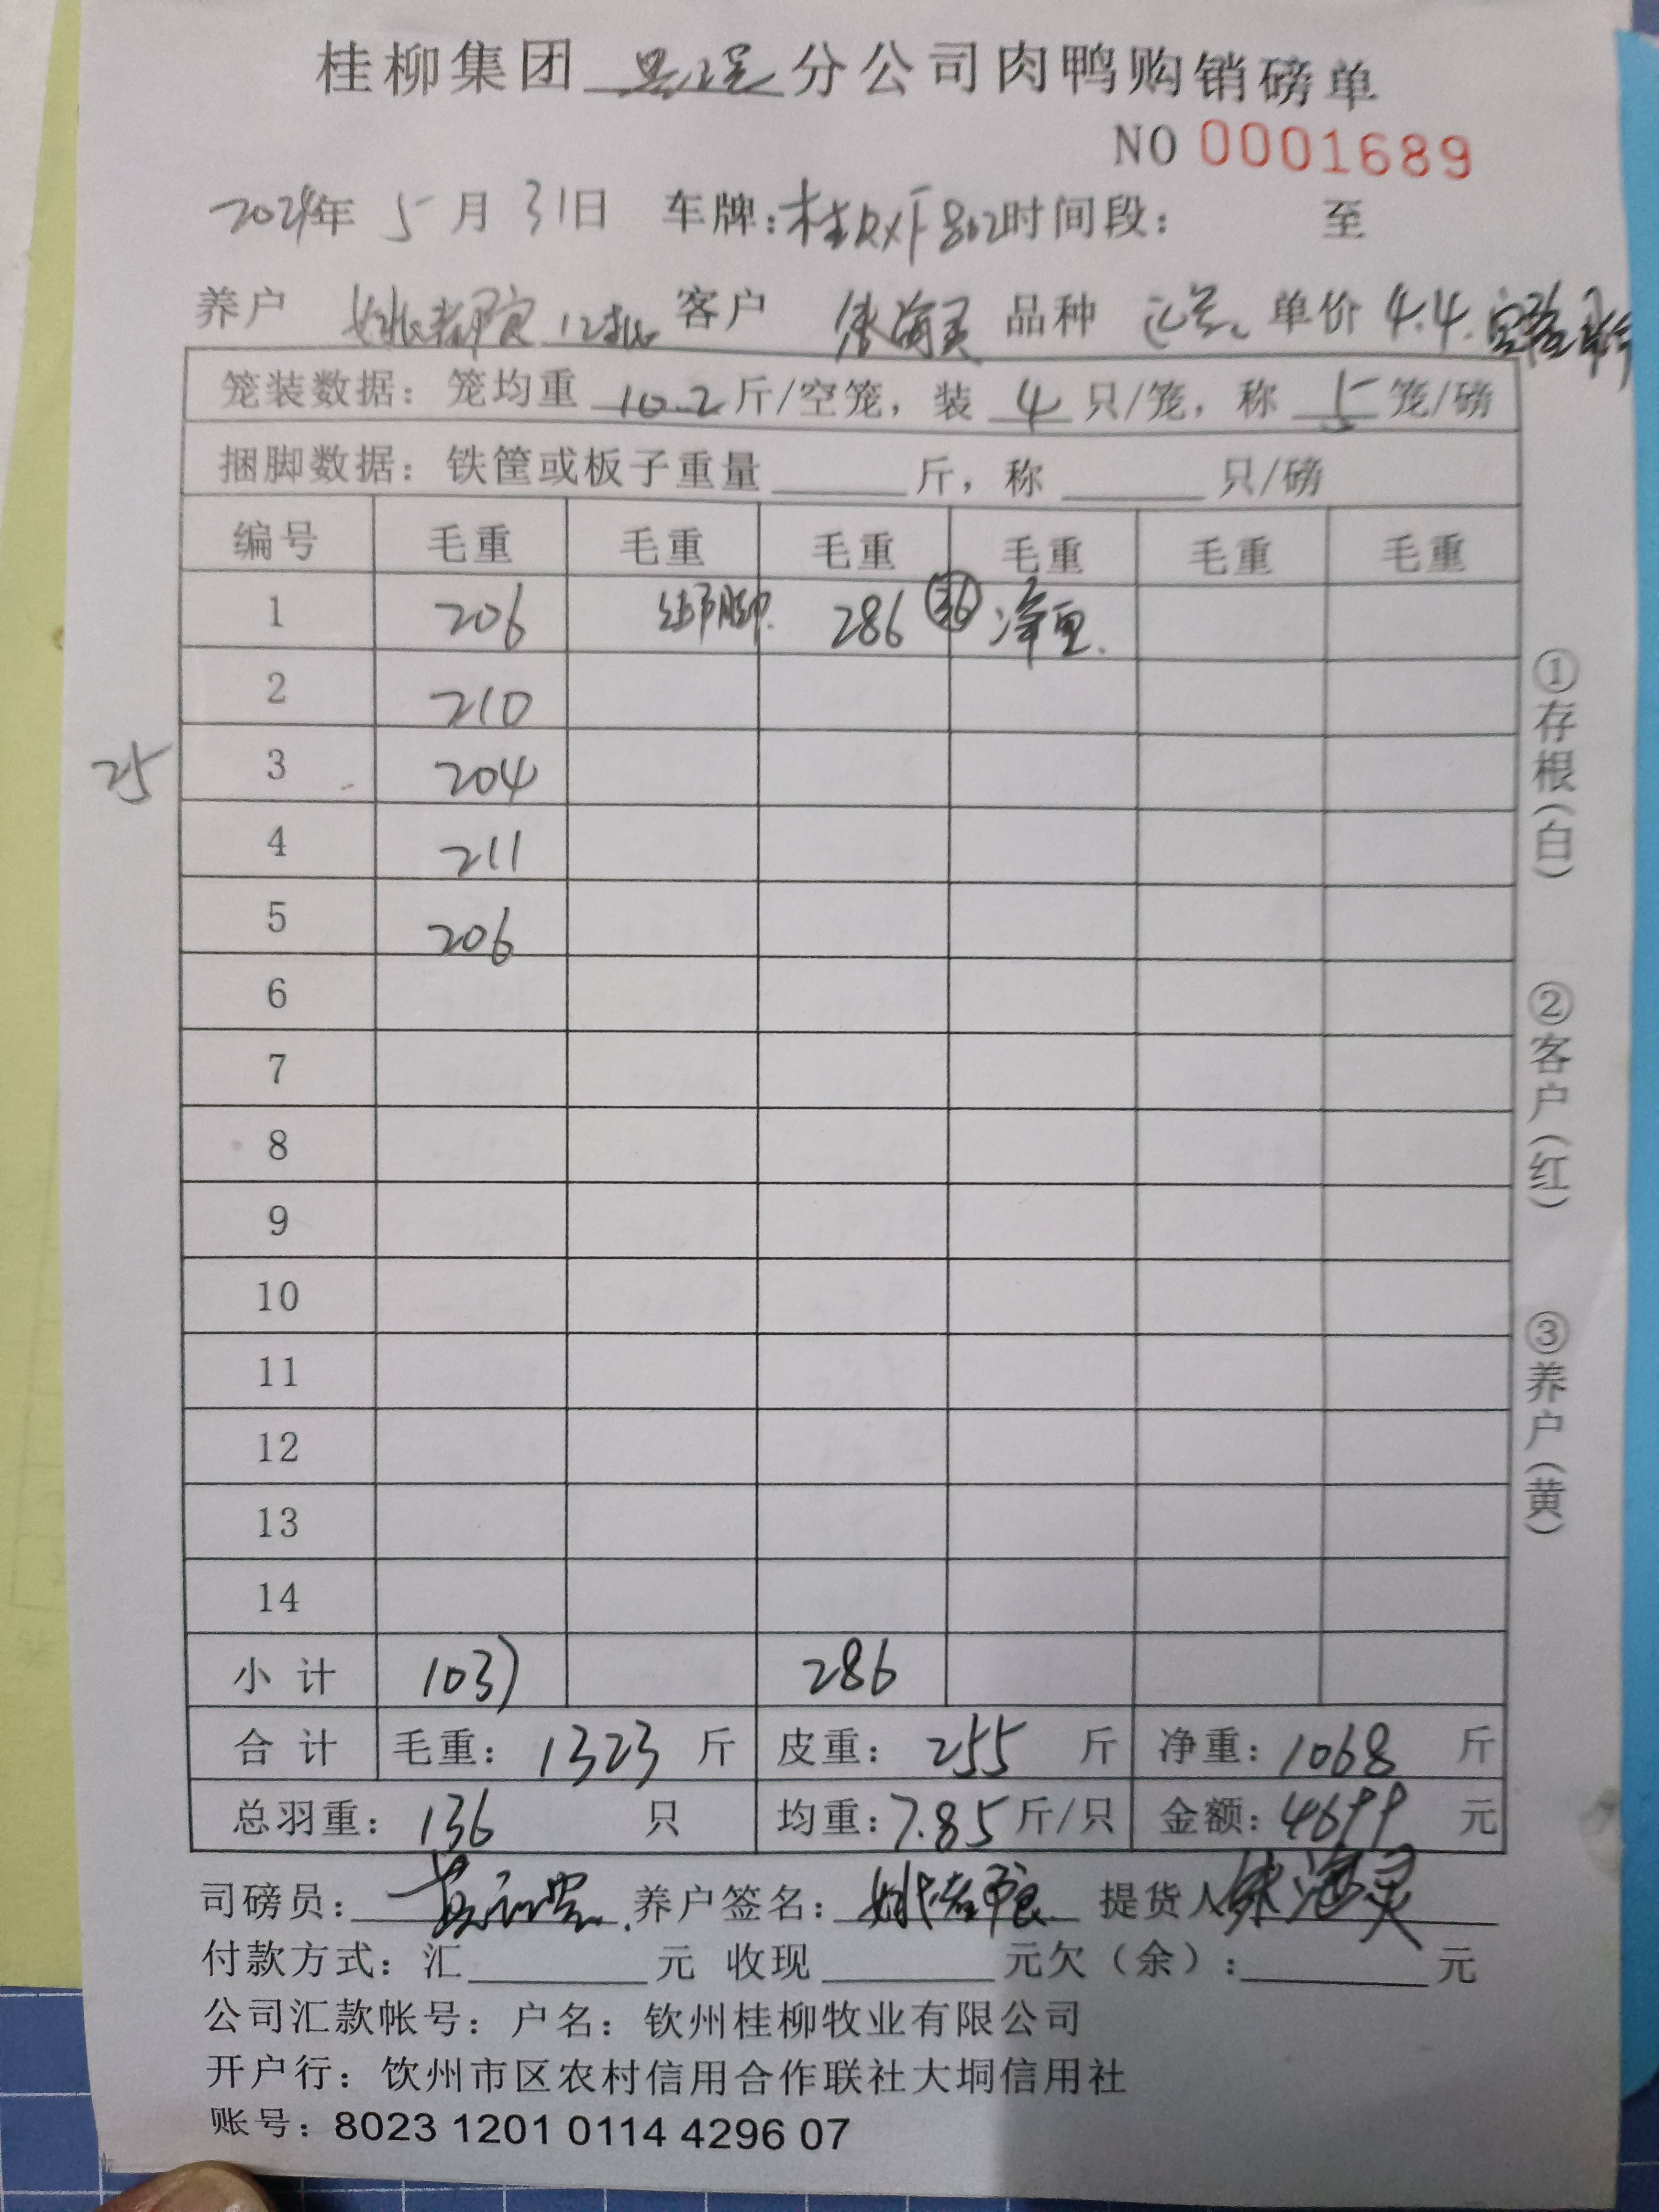 桂柳集团 分公司肉鸭购销磅单
NO 0001689
2024年 5月 31日 车牌: 桂 802 时间段: 至
养户 12批 客户 海灵 品种 单价 4.4
笼装数据: 笼均重 10.2 斤/空笼, 装 4 只/笼, 称 5 笼/磅
捆脚数据: 铁筐或板子重量 斤, 称 只/磅
编号 毛重 毛重 毛重 毛重 毛重 毛重
1 206 286 36 净重.
2 210
25
3 204
4 211
5 206
6
7
8
9
10
11
12
13
14
小 计 1037 286
合 计 毛重: 1323 斤 皮重: 255 斤 净重: 1068 斤
总羽重: 136 只 均重: 7.85 斤/只 金额: 4699 元
司磅员: 养户签名: 提货人 海灵
付款方式: 汇 元 收现 元欠(余): 元
公司汇款帐号: 户名: 钦州桂柳牧业有限公司
开户行: 饮州市区农村信用合作联社大垌信用社
账号: 8023 1201 0114 4296 07
①存根(白)
②客户(红)
③养户(黄)